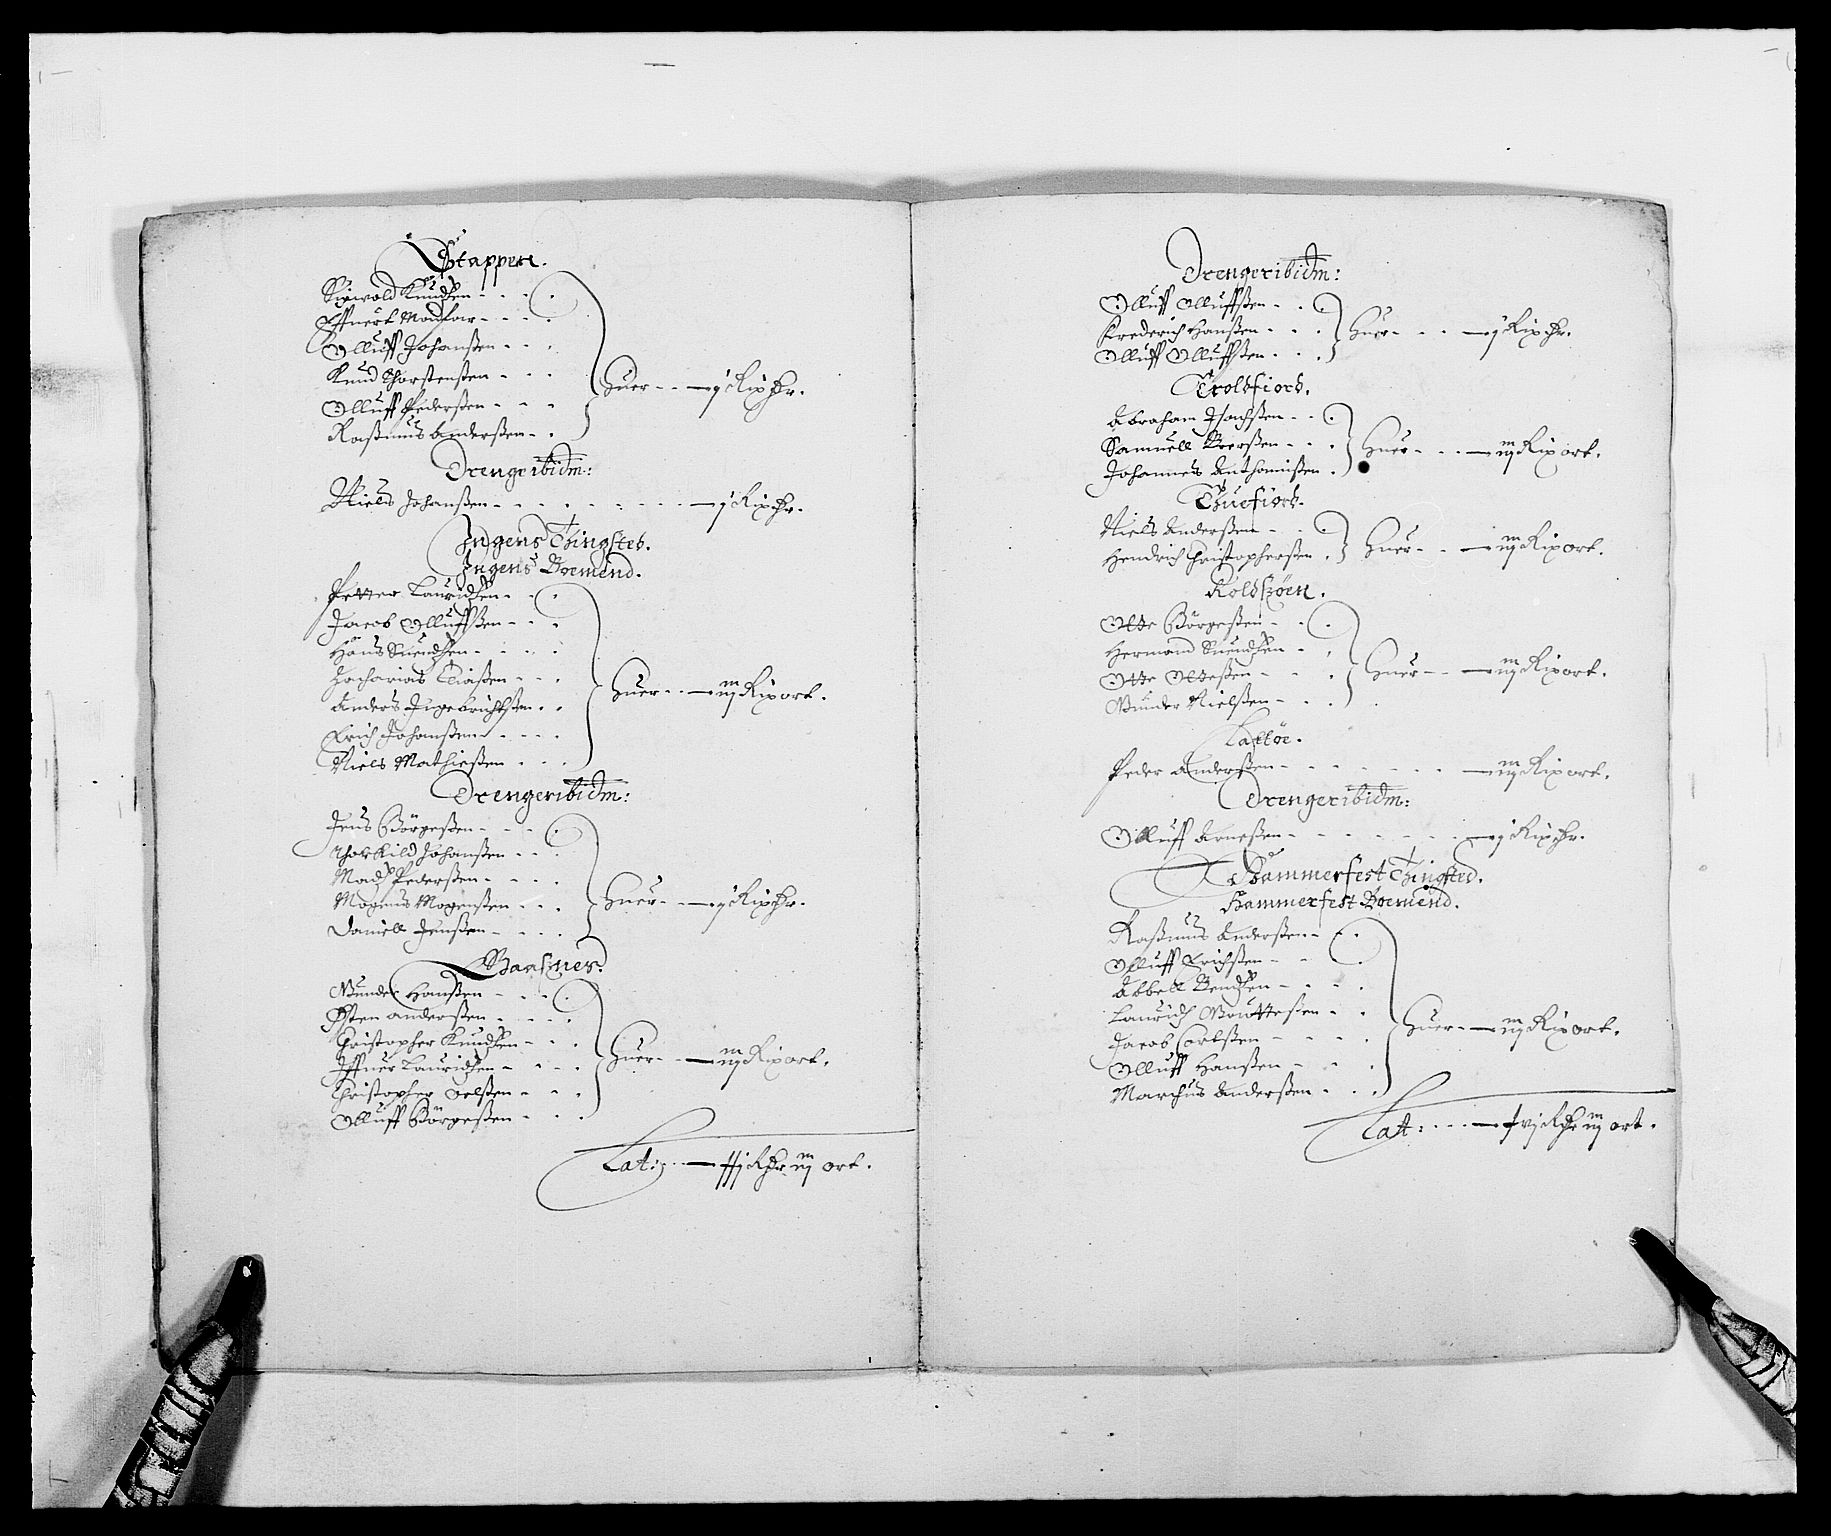 Stappen.
Siguold Knudsen
Effuert
Olluff Johanßen
Knud Thorstenßen
Olluff Pederßen
Raßmus Anderßen
huer - j Rixdr.
Drenger ibidm:
Niels Johanßen - j Rixdr.
Ingens Thingsted.
Ingens Boemend.
Petter Lauridsen
Jacob Olluffßen
Hans Suendsen
Zacharias Eliaßen
Anders Ingebrichtßen
Erich Johanßen
Niels Mathießen
huer - iij Rixort.
Drenger ibidm:
Jens Börgeßen
Thorkild Johanßen
Mads Pederßen
Mogens Mogenßen
Daniell Jenßen
huer - j Rixdr.
Gunder Hanßen
Østen Anderßen
Christopher Knudsen
Iffuer Lauridsen
Christopher Oelßen
Olluff Börgeßen
huer - iij Rixort.
Lat: Rdr iij ort.
Drenger ibidm:
Olluff Olluffßen
Frederich Hanßen
Olluff Olluffßen
huer - j Rixdr.
Troldfiord.
Abraham Isachßen
Samuell Iverßen
Johannes Anthonißen
huer - iij Rixort.
Thuefiord.
Niels Anderßen
Hendrich Christopherßen
huer - iij Rixort.
Roldsöen.
Otte Börgeßen
Hermand Suendsen
Otte Otteßen
Gunder Nielßen
huer - iij Rixort.
Peder Anderßen - iij Rixort.
Drenger ibidm:
Olluff Arneßen - j Rixdr.
Hammerfest Thingsted.
Hammerfest Boemend.
Raßmus Anderßen
Olluff Erichßen
Abbell Bendsen
Lauridz Goutteßen
Jacob Carlßen
Olluff Hanßen
Marchus Anderßen
huer - iij Rixort.
Lat: Rdr iij ort.